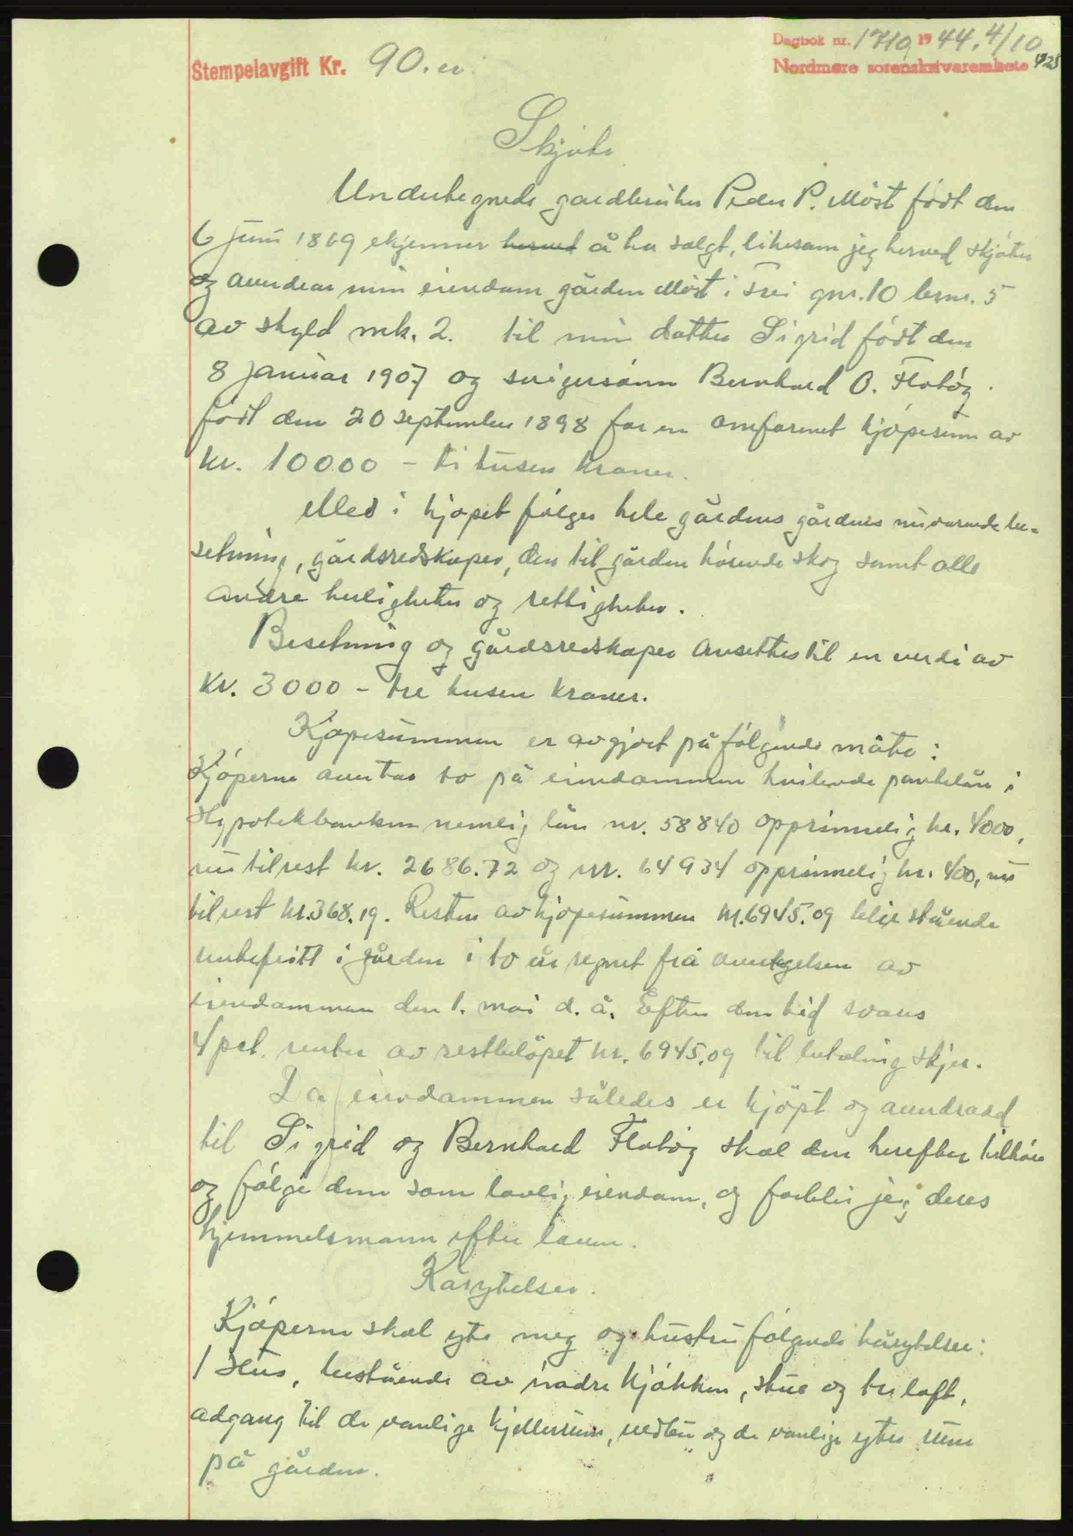 Dagbok nr. 1710, 1944. 4/10
Stempelavgift Kr. 90.
Nordmøre sorenskriverembete
Skjøte
Undertegnede gardbruker Peder P. Møst født den
6 juni 1869 erkjenner herved å ha solgt, likesom jeg herved skjøter
og avendrar min eiendom gården Møst i Frei gnr. 10 brnr. 5
av skyld mk. 2. til min datter Sigrid født den
8 januar 1907 og svigersønn Bernhard O. Flatøy
født den 20 september 1898 for en omforenet kjøpesum av
kr. 10000 - ti tusen kroner.
Med i kjøpet følger hele gårdens gårdens nuværende be-
setning, gårdsredskaper, den til gården hørende skog samt alle
andre herligheter og rettigheter.
Besetning og gårdsredskaper ansettes til en verdi av
Kr. 3000 - tre tusen kroner.
Kjøpesummen er avgjort på følgende måte:
Kjøperne overtar to på eiendommen hvilende pantelån i
Hypotekbanken nemlig lån nr. 58840 opprinnelig kr. 4000,
nu tilrest kr. 2686.72 og nr. 64934 opprinnelig kr. 400, nu
tilrest kr. 368.19. Resten av kjøpesummen kr. 6945.09 blir stående
rentefritt i gården i to år regnet fra overtagelsen av
eiendommen den 1. mai d. å. Efter den tid svares
4 pct. renter av restbeløpet kr. 6945.09 til betaling skjer.
Da eiendommen således er kjøpt og avendradd
til Sigrid og Bernhard Flatøy skal den herefter tilhøre
og følge dem som lovlig eiendom, og forblir jeg deres
hjemmelsmann efter loven.
Kårytelser.
Kjøperne skal yte meg og hustru følgende kårytelser:
1 Hus, bestående av nedre kjøkken, stue og tre loft,
adgang til de vanlige kjellerrum, vedbu og de vanlige ytre rum
på gården.